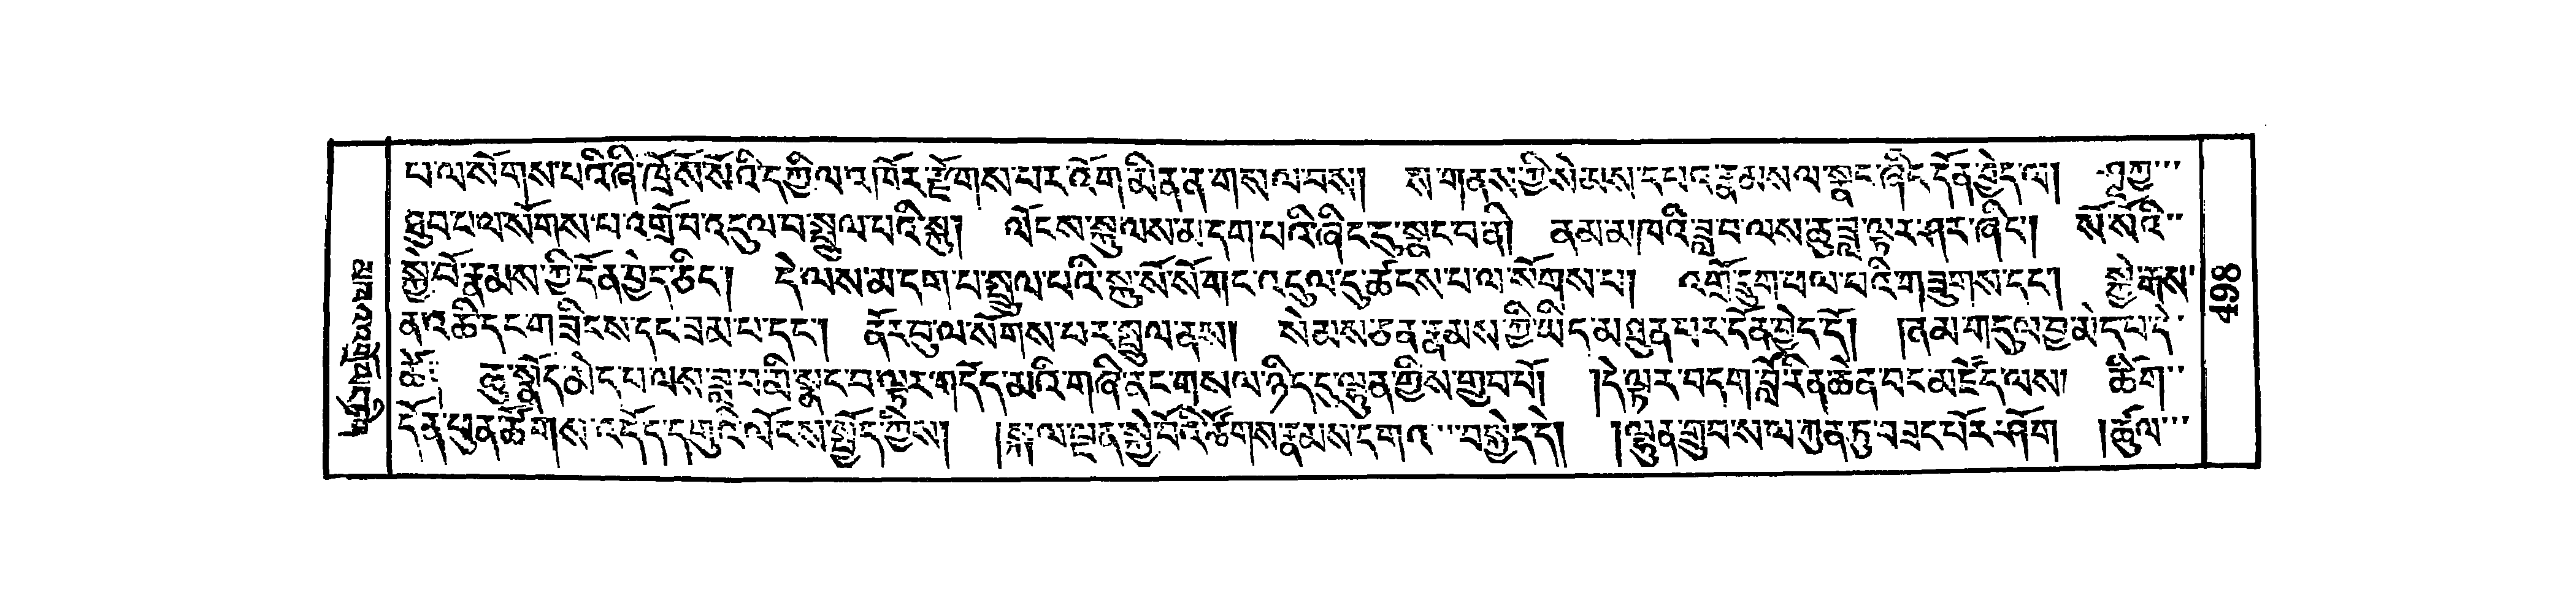 པ་ལ་སོགས་པའི་ཞི་ཁྲོ་སོ་སོའི་དཀྱིལ་འཁོར་རྫོགས་པར་འོག་མིན་ན་གསལ་བས། ས་གནས་ཀྱི་སེམས་དཔའ་རྣམས་ལ་སྣང་ཞིང་དོན་བྱེད་ལ། ཤཱཀྱ
ཐུབ་པ་ལ་སོགས་པ་འགྲོ་བ་འདུལ་བ་སྤྲུལ་པའི་སྐུ། ལོངས་སྐུ་ལས་མ་དག་པའི་ཞིང་དུ་སྣང་བ་ནི། ནམ་མཁའི་ཟླ་བ་ལས་ཆུ་ཟླ་ལྟར་ཤར་ཞིང་། སོ་སོའི
སྐྱེ་བོ་རྣམས་ཀྱི་དོན་བྱེད་ཅིང་། དེ་ལས་མ་དག་པ་སྤྲུལ་པའི་སྐུ་སོ་སོ་གང་འདུལ་དུ་ཚངས་པ་ལ་སོགས་པ། འགྲོ་དྲུག་ཕལ་པའི་གཟུགས་དང་། སྐྱེ་རྒས
ན་འཆི་དང་གཟིངས་དང་ཟམ་པ་དང་། ནོར་བུ་ལ་སོགས་པར་སྤྲུལ་ནས། སེམས་ཅན་རྣམས་ཀྱི་ཡིད་མཐུན་པར་དོན་བྱེད་དོ། །ནམ་གདུལ་བྱ་མེད་པ་དེ
ཚེ་ ཆུ་སྣོད་མེད་པ་ལས་ཟླ་བའི་སྣང་བ་ལྟར་གདོད་མའི་གཞི་ནང་གསལ་ཉིད་དུ་ལྷུན་གྱིས་གྲུབ་པོ། །དེ་ལྟར་བདག་བློ་རིན་ཆེན་བང་མཛོད་ལས། ཚིག
དོན་ཕུན་ཚོགས་འདོད་དགུའི་ལོངས་སྤྱོད་ཀྱིས། །སྐལ་ལྡན་སྐྱེ་བོའི་ཚོགས་རྣམས་དགའ་བསྐྱེད་དེ། །ལྷུན་གྲུབ་ས་ལ་ཀུན་ཏུ་བཟང་པོར་ཤོག །ཚུལ